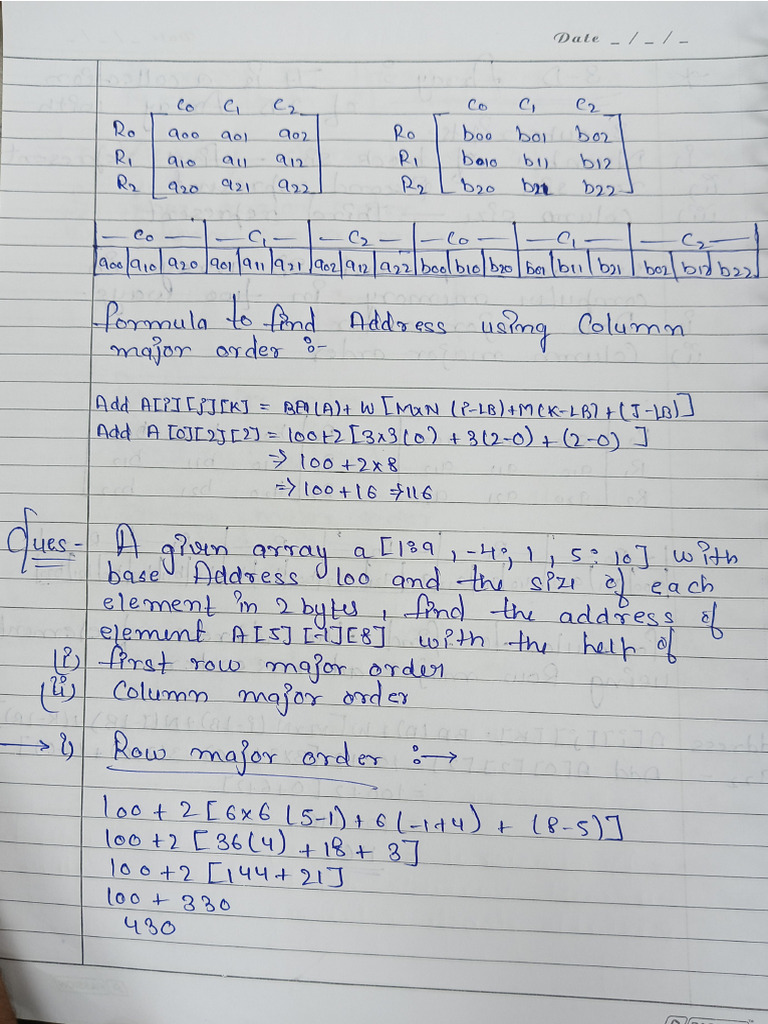 Date _ / _ / _
C0 C1 C2 C0 C1 C2
R0 a00 a01 a02 R0 b00 b01 b02
R1 a10 a11 a12 R1 b010 b11 b12
R2 a20 a21 a22 R2 b20 b21 b22
— C0 — — C1 — — C2 — — C0 — — C1 — — C2 —
a00 a10 a20 a01 a11 a21 a02 a12 a22 b00 b10 b20 b01 b11 b21 b02 b12 b22
Formula to find Address using Column
major order :-
Add A[i][j][K] = BA(A) + W [MxN (i-LB)+M(K-LB)+(J-LB)]
Add A [0][2][2] = 100+2[3x3(0) + 3(2-0) + (2-0) ]
=> 100 + 2x8
=> 100 + 16 => 116
Ques - A given array a [1:9, -4:, 1, 5:10] with
base Address 100 and the size of each
element in 2 bytes, find the address of
element A[5][-1][8] with the help of
(i) first row major order
(ii) Column major order
→ i) Row major order :→
100 + 2 [6x6 (5-1) + 6(-1+4) + (8-5)]
100+2 [36(4) + 18 + 3]
100+2 [144 + 21]
100 + 330
430